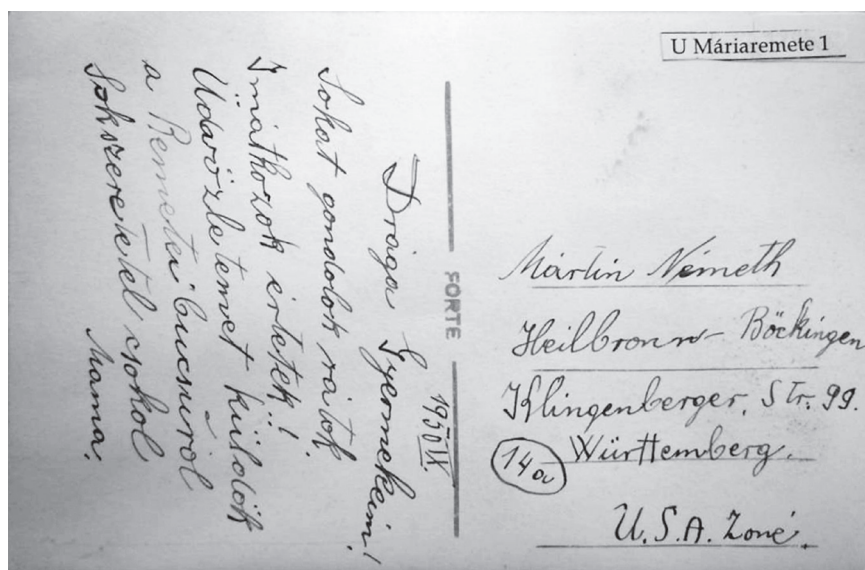 U Máriaremete 1
1950 IX.
Drága Gyermekeim!
Sokat gondolok rátok
Imátkozok értetek!!
Üdvözletemet küldök
a Remetei bucsúról
Sokszeretetel csokol
Mama.
FORTE
Martin Németh
Heilbronn - Böckingen
Klingenberger. Str. 99.
14a Württemberg.
U.S.A. Zoné.